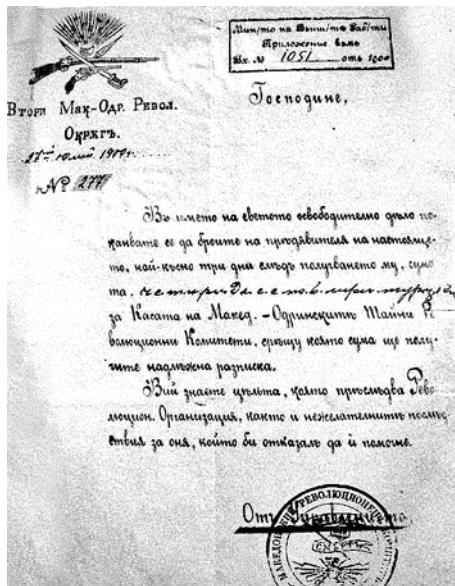 Мин/то на Външ/тѣ Работи
Приложение къмъ
Вх. № 1051 отъ 1900
Втори Мак-Одр. Револ.
Окрѫгъ.
27ий Юлий 1900 г.
№ 277
Господине,
Въ името на светото освободително дѣло по-
канвате се да броите на приѫдявителя на настояще-
то, най-късно три дни слѣдъ получването му, сума
та,
за Касата на Макед. - Одринскитѣ Тайни Ре
волюционни Комитети, срѣщу която сума ще полу-
чите надлѣжна разписка.
Вий знаете цѣльта, която прѣслѣдва Рево
люцион. Организация, както и нежелателнитѣ послѣд
ствия за оня, който би отказалъ да ѝ помогне.
Отъ
МАКЕДОНСКИ РЕВОЛЮЦИОНЕНЪ